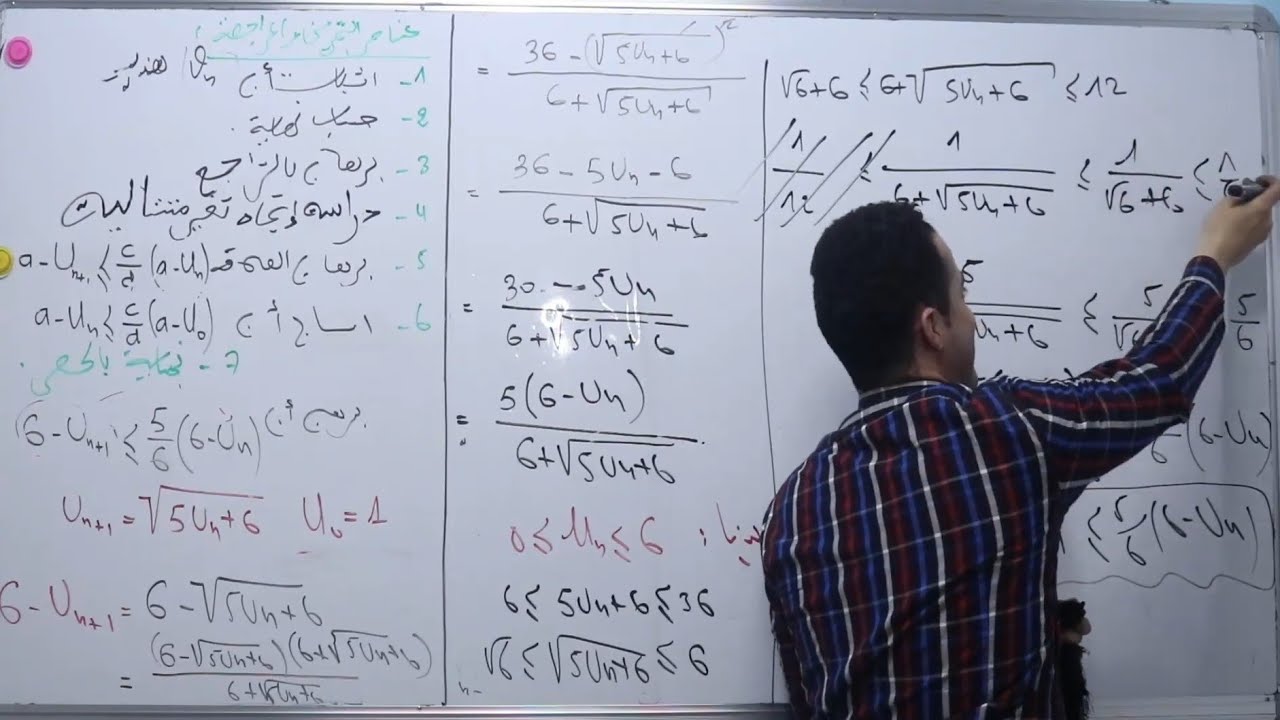 عناصر
1- اثبات أن Vn هندسية
2- حساب نهاية .
3- برهان بالتراجع
4- دراسة إتجاه تغير متتاليات
5- برهان a-Un+1 ≤ c/d (a-Un)
6- a-Un ≤ c/d (a-U0) أن
7- نهاية بالحصر .
6-Un+1 ≤ 5/6 (6-Un) أن
Un+1 = √(5Un+6) U0 = 1
6-Un+1 = 6-√(5Un+6)
= (6-√(5Un+6))(6+√(5Un+6)) / 6+√(5Un+6)
= 36-(√(5Un+6))² / 6+√(5Un+6)
= 36-5Un-6 / 6+√(5Un+6)
= 30-5Un / 6+√(5Un+6)
= 5(6-Un) / 6+√(5Un+6)
0 ≤ Un ≤ 6 :
6 ≤ 5Un+6 ≤ 36
√6 ≤ √(5Un+6) ≤ 6
√6+6 ≤ 6+√(5Un+6) ≤ 12
1/12 ≤ 1/6+√(5Un+6) ≤ 1/√6+6 ≤ 1
5 Un+6 ≤ 5/√6 5/6
(6-Un)
≤ 5/6 (6-Un)